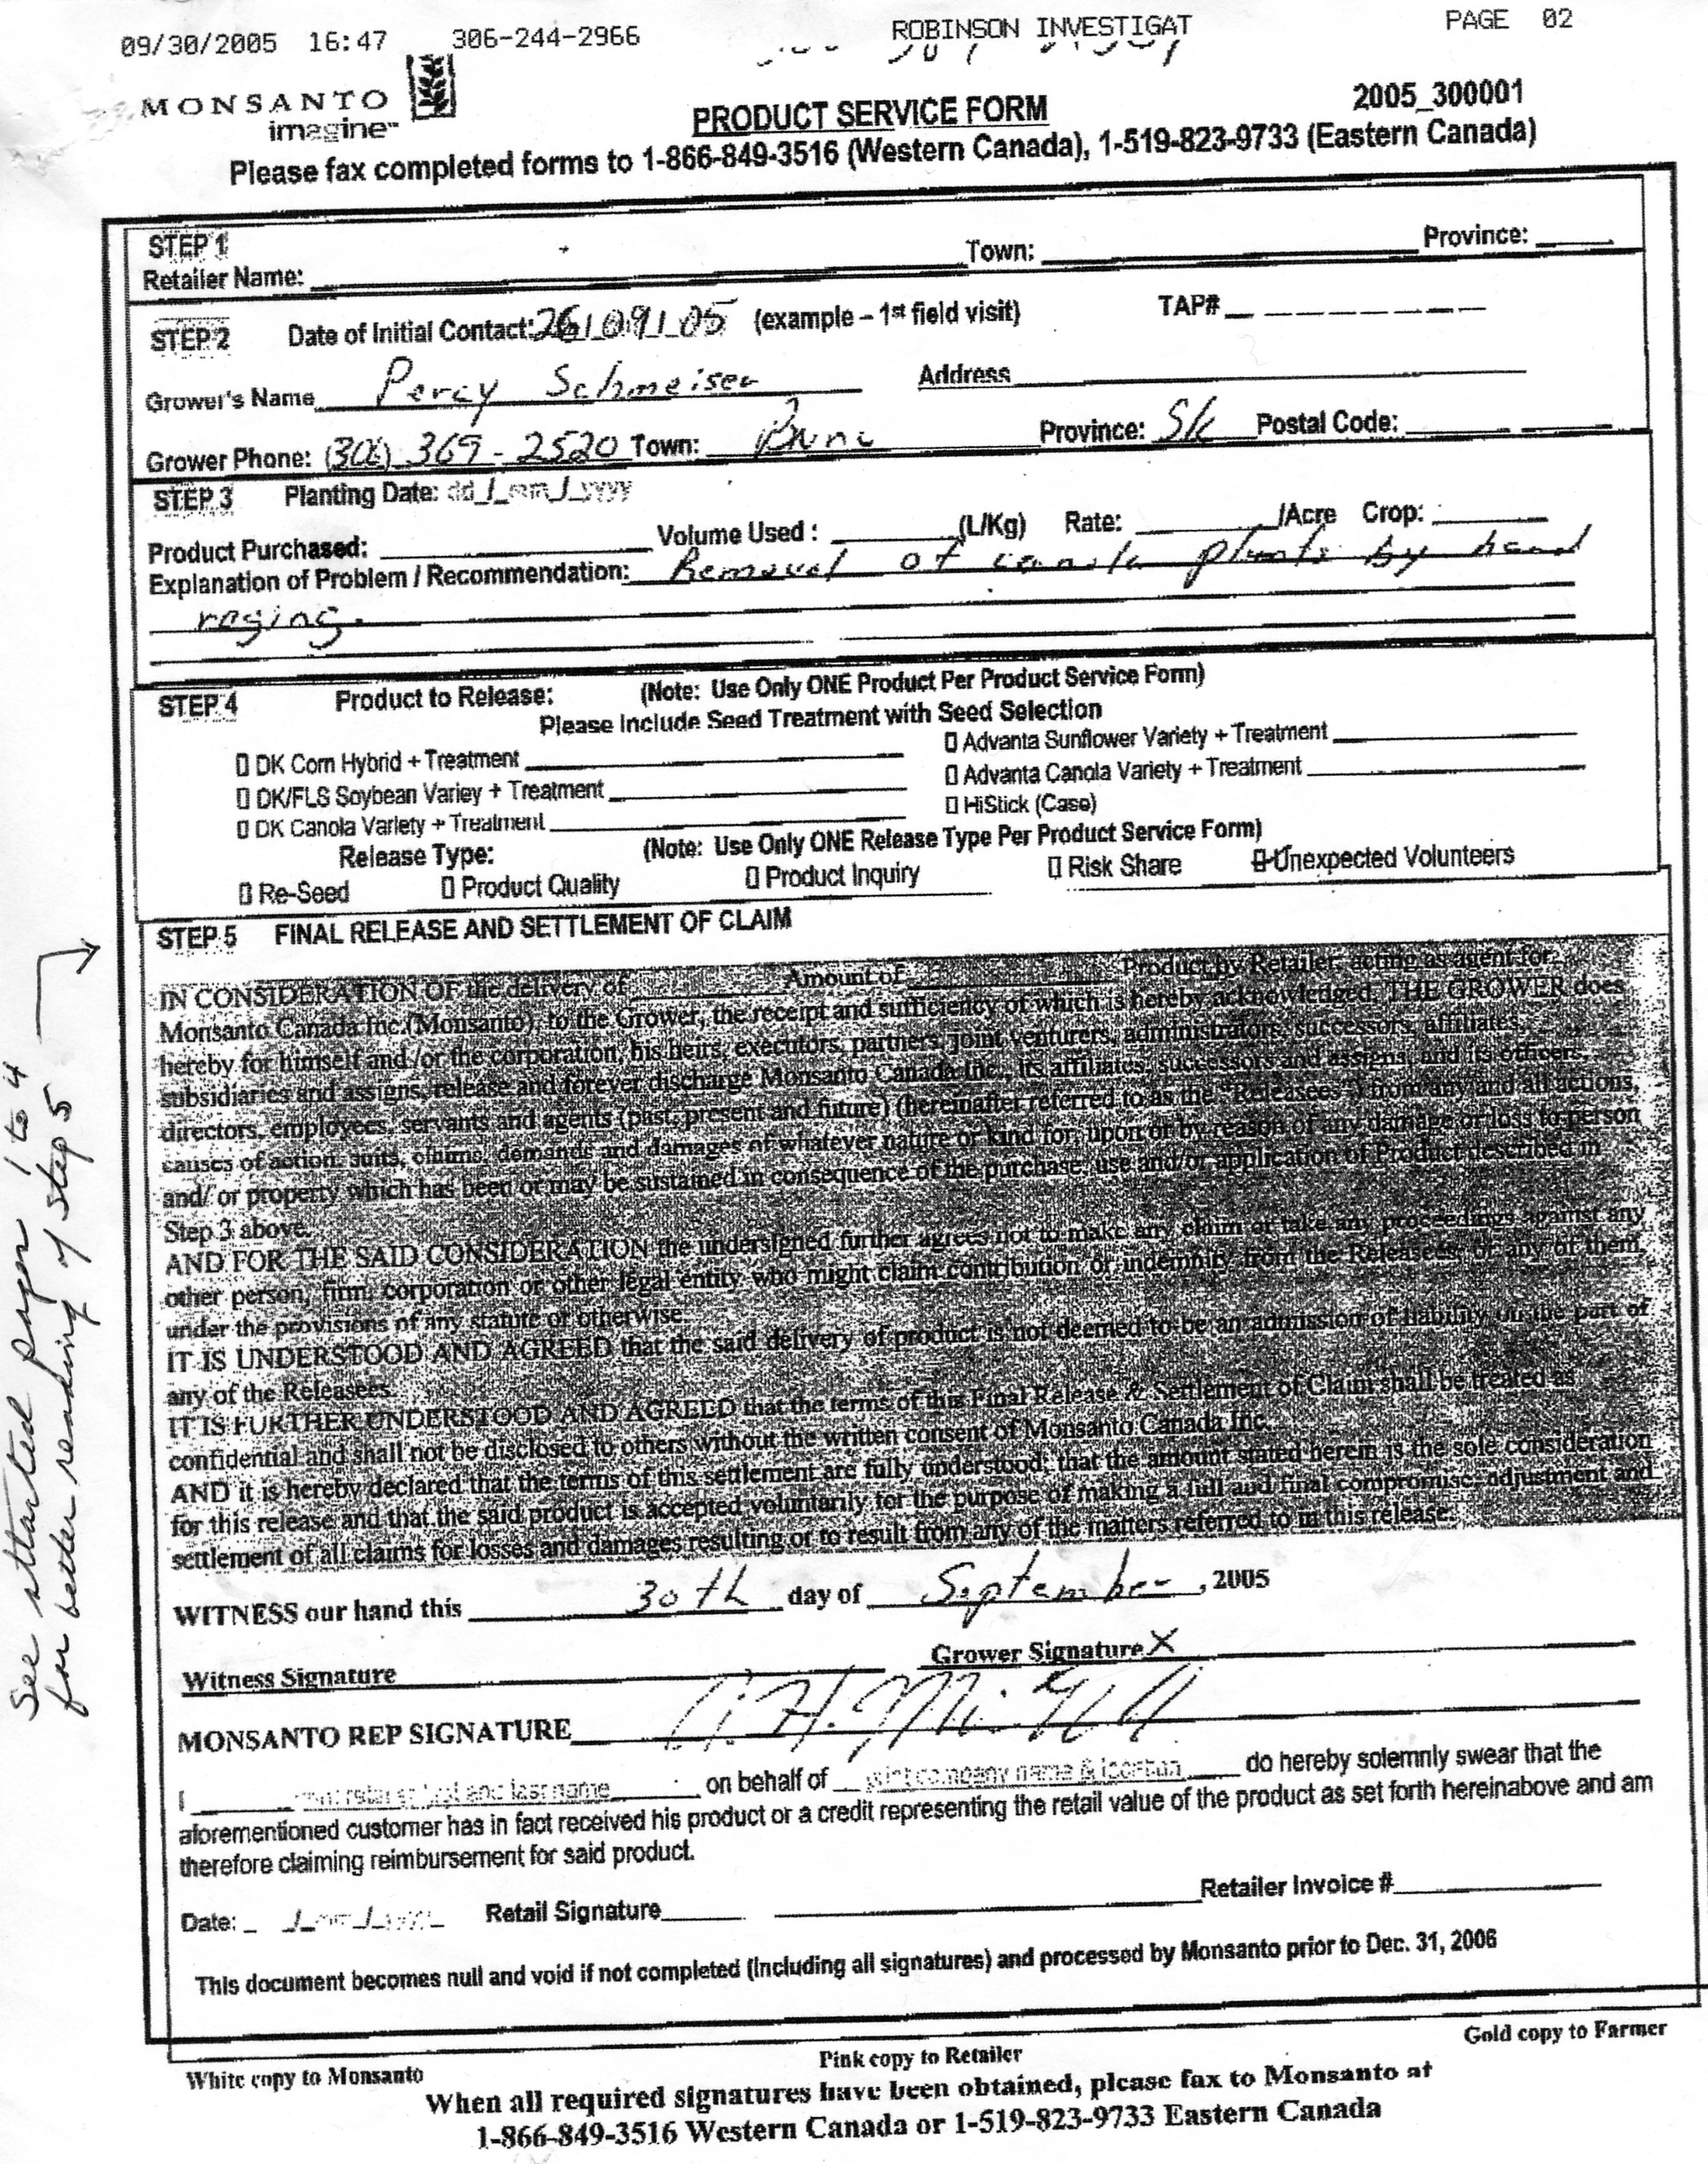 09/30/2005 16:47 306-244-2966 ROBINSON INVESTIGAT PAGE 02
MONSANTO
imagine™
PRODUCT SERVICE FORM
2005_300001
Please fax completed forms to 1-866-849-3516 (Western Canada), 1-519-823-9733 (Eastern Canada)
STEP 1
Retailer Name: Town: Province:
STEP 2 Date of Initial Contact: 26/09/05 (example – 1st field visit) TAP#
Grower's Name Percy Schmeiser Address
Grower Phone: (306) 369-2520 Town: Bruno Province: SK Postal Code:
STEP 3 Planting Date: dd / mm / yyyy
Product Purchased: Volume Used : (L/Kg) Rate: /Acre Crop:
Explanation of Problem / Recommendation: Removal of canola plants by hand
roging.
STEP 4 Product to Release: (Note: Use Only ONE Product Per Product Service Form)
Please Include Seed Treatment with Seed Selection
DK Corn Hybrid + Treatment
Advanta Sunflower Variety + Treatment
DK/FLS Soybean Variey + Treatment
Advanta Canola Variety + Treatment
DK Canola Variety + Treatment
HiStick (Case)
Release Type: (Note: Use Only ONE Release Type Per Product Service Form)
Re-Seed Product Quality Product Inquiry Risk Share Unexpected Volunteers
STEP 5 FINAL RELEASE AND SETTLEMENT OF CLAIM
IN CONSIDERATION OF the delivery of Amount of Product by Retailer, acting as agent for
Monsanto Canada Inc.(Monsanto), to the Grower, the receipt and sufficiency of which is hereby acknowledged, THE GROWER does
hereby for himself and /or the corporation, his heirs, executors, partners, joint venturers, administrators, successors, affiliates,
subsidiaries and assigns, release and forever discharge Monsanto Canada Inc., its affiliates, successors and assigns, and its officers,
directors, employees, servants and agents (past, present and future) (hereinafter referred to as the "Releasees") from any and all actions,
causes of action, suits, claims, demands and damages of whatever nature or kind for, upon or by reason of any damage or loss to person
and/ or property which has been or may be sustained in consequence of the purchase, use and/or application of Product described in
Step 3 above.
AND FOR THE SAID CONSIDERATION the undersigned further agrees not to make any claim or take any proceedings against any
other person, firm, corporation or other legal entity who might claim contribution or indemnity from the Releasees, or any of them,
under the provisions of any statute or otherwise.
IT IS UNDERSTOOD AND AGREED that the said delivery of product is not deemed to be an admission of liability on the part of
any of the Releasees.
IT IS FURTHER UNDERSTOOD AND AGREED that the terms of this Final Release & Settlement of Claim shall be treated as
confidential and shall not be disclosed to others without the written consent of Monsanto Canada Inc.
AND it is hereby declared that the terms of this settlement are fully understood; that the amount stated herein is the sole consideration
for this release and that the said product is accepted voluntarily for the purpose of making a full and final compromise, adjustment and
settlement of all claims for losses and damages resulting or to result from any of the matters referred to in this release.
See attached pages 1 to 4
for better reading of step 5
WITNESS our hand this 30th day of September, 2005
Witness Signature Grower Signature X
MONSANTO REP SIGNATURE
I first and last name on behalf of print company name & location do hereby solemnly swear that the
aforementioned customer has in fact received his product or a credit representing the retail value of the product as set forth hereinabove and am
therefore claiming reimbursement for said product.
Date: Retail Signature Retailer Invoice #
This document becomes null and void if not completed (including all signatures) and processed by Monsanto prior to Dec. 31, 2006
White copy to Monsanto Pink copy to Retailer Gold copy to Farmer
When all required signatures have been obtained, please fax to Monsanto at
1-866-849-3516 Western Canada or 1-519-823-9733 Eastern Canada